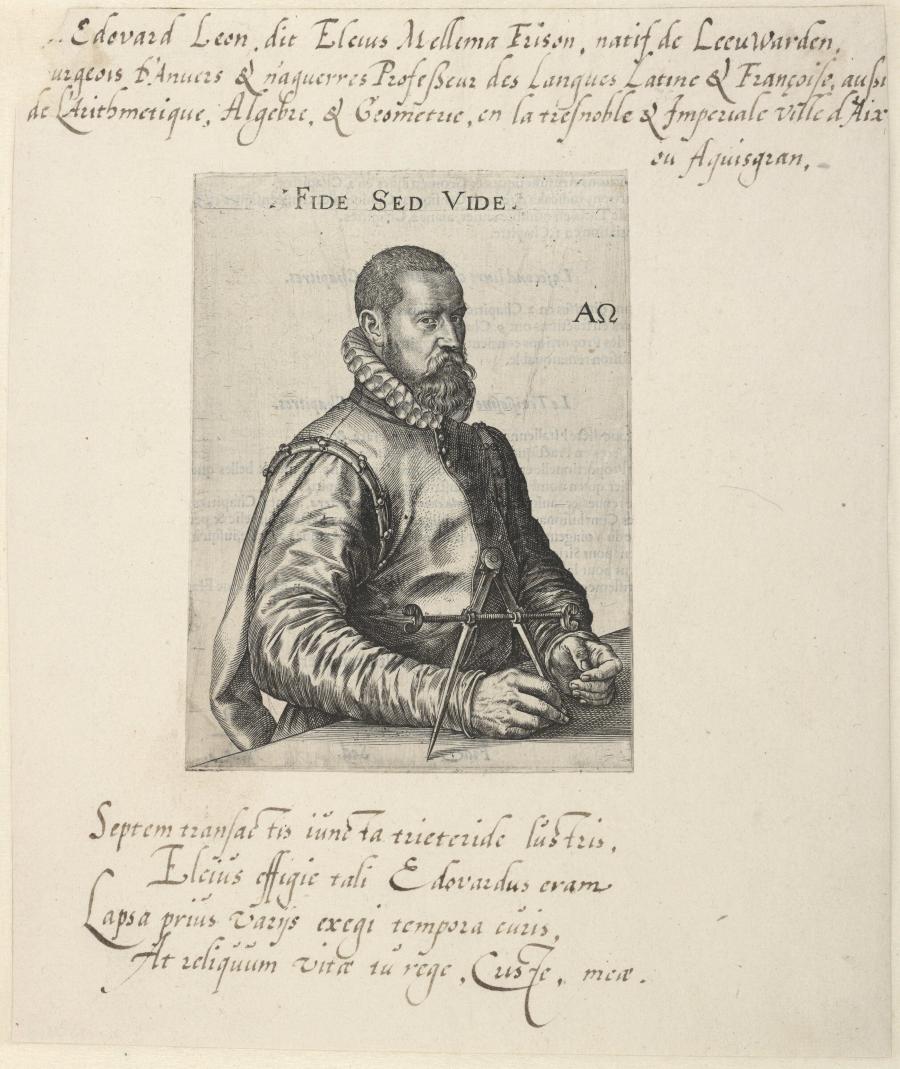 Edovard Leon, dit Elcius Mellema Frison, natif de LeeuWarden,
urgeois D'Anvers & n'aguerres Professeur des Langues Latine & Françoise, aussi
de L'Arithmetique, Algebre, & Geometrie, en la tresnoble & Imperiale ville d'Aix
ou Aquisgran,
FIDE SED VIDE.
ΑΩ
Septem transactis iuncta trieteride lustris,
Elcius effigie tali Edovardus eram
Lapsa prius varijs exegi tempora curis,
At reliquum vitæ tu rege, Criste, meæ.